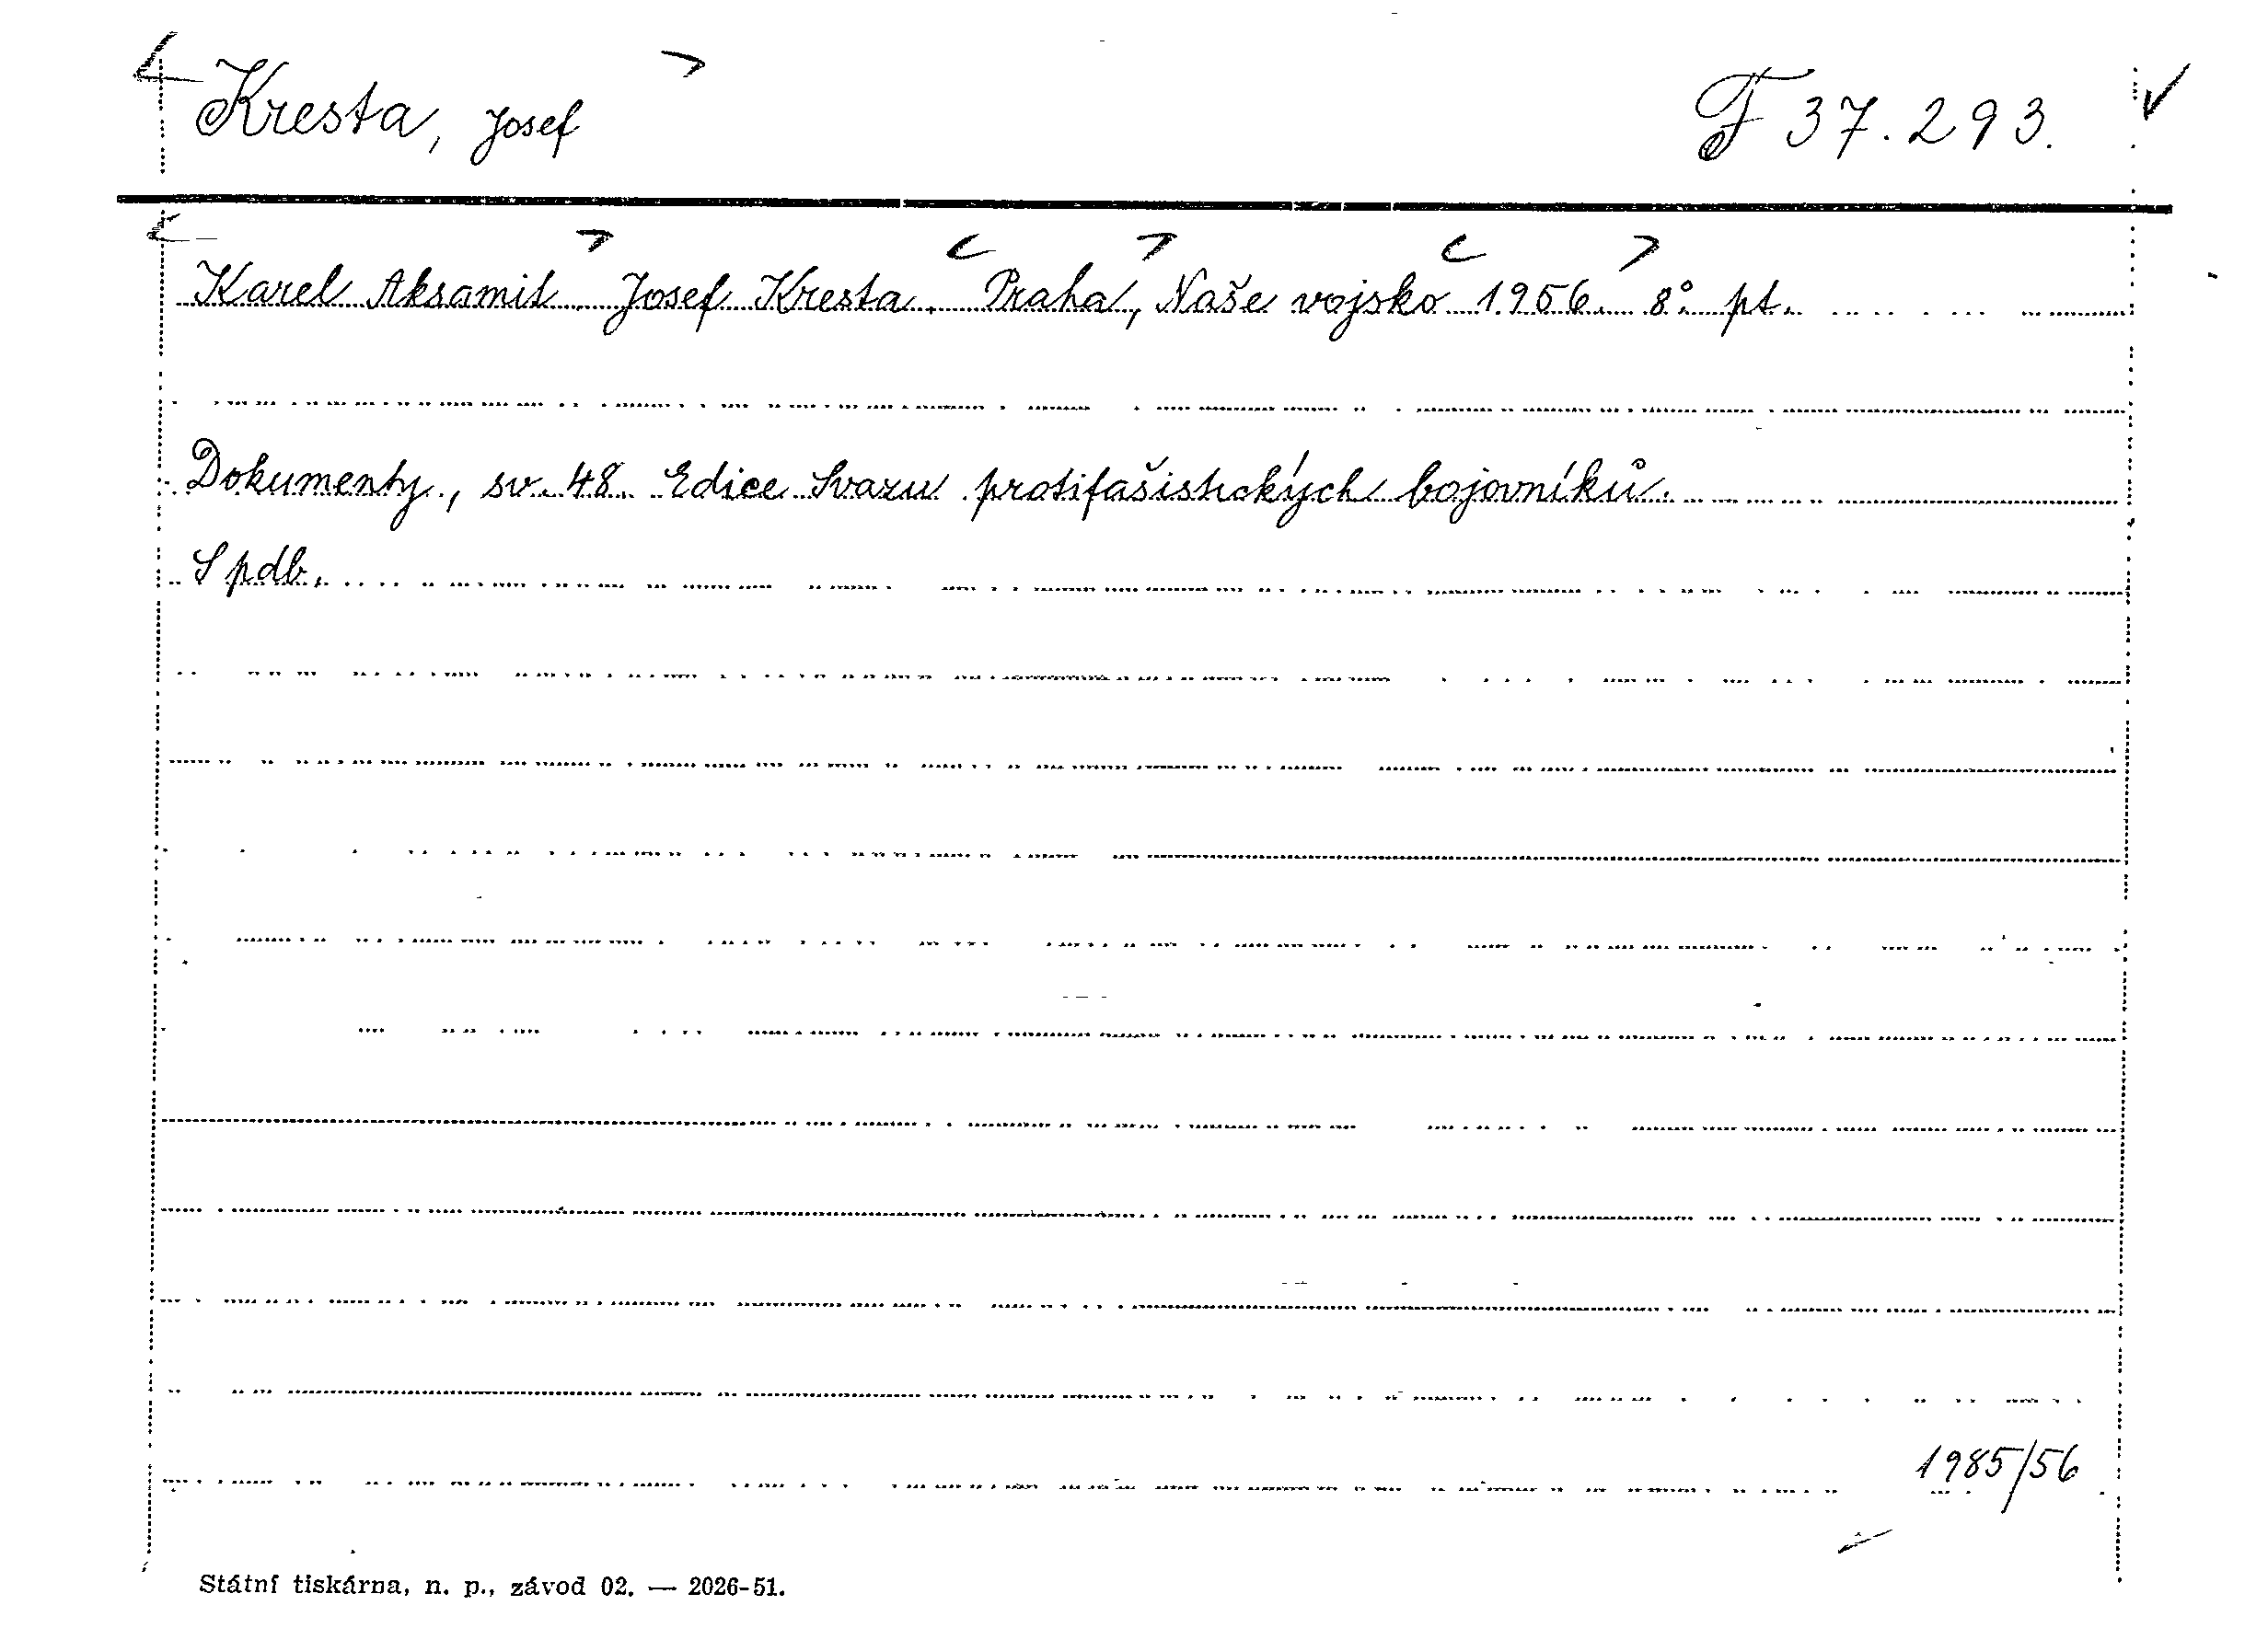 Kresta, Josef
F 37.293.
Karel Aksamit. Josef Kresta. Praha, Naše vojsko 1956. 8° pt.
Dokumenty, sv. 48. Edice Svazu protifašistických bojovníků.
S pdb.
1985/56
Státní tiskárna, n. p., závod 02. — 2026-51.